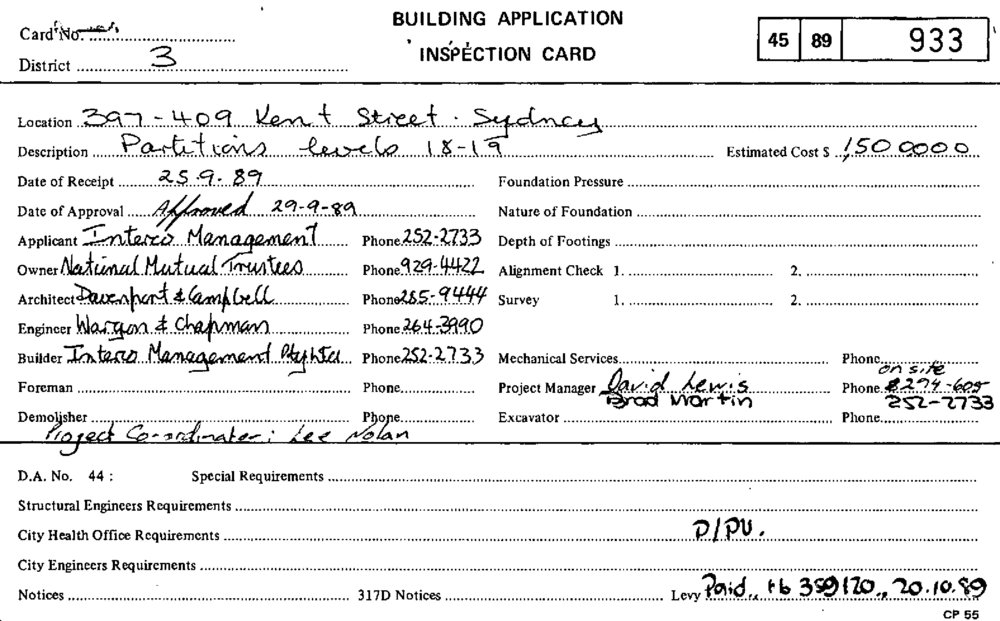 BUILDING APPLICATION
INSPECTION CARD
Card No.
District 3
45 89 933
Location 397-409 Kent Street. Sydney
Description Partitions levels 18-19
Estimated Cost $ 1,500000
Date of Receipt 25.9.89
Foundation Pressure
Date of Approval Approved 29-9-89
Nature of Foundation
Applicant Interco Management Phone 252-2733
Depth of Footings
Owner National Mutual Trustees Phone 929-4422
Alignment Check 1. 2.
Architect Davenport & Campbell Phone 285-9444
Survey 1. 2.
Engineer Wargon & Chapman Phone 264-3990
Builder Interco Management Pty Ltd Phone 252-2733
Mechanical Services Phone
on site
Foreman Phone
Project Manager David Lewis Phone
Brad Martin 252-2733
Demolisher Phone
Excavator Phone
Project Co-ordinator: Lee Nolan
D.A. No. 44 : Special Requirements
Structural Engineers Requirements
City Health Office Requirements D/PU.
City Engineers Requirements
Notices 317D Notices Levy Paid, 20.10.89
CP 55